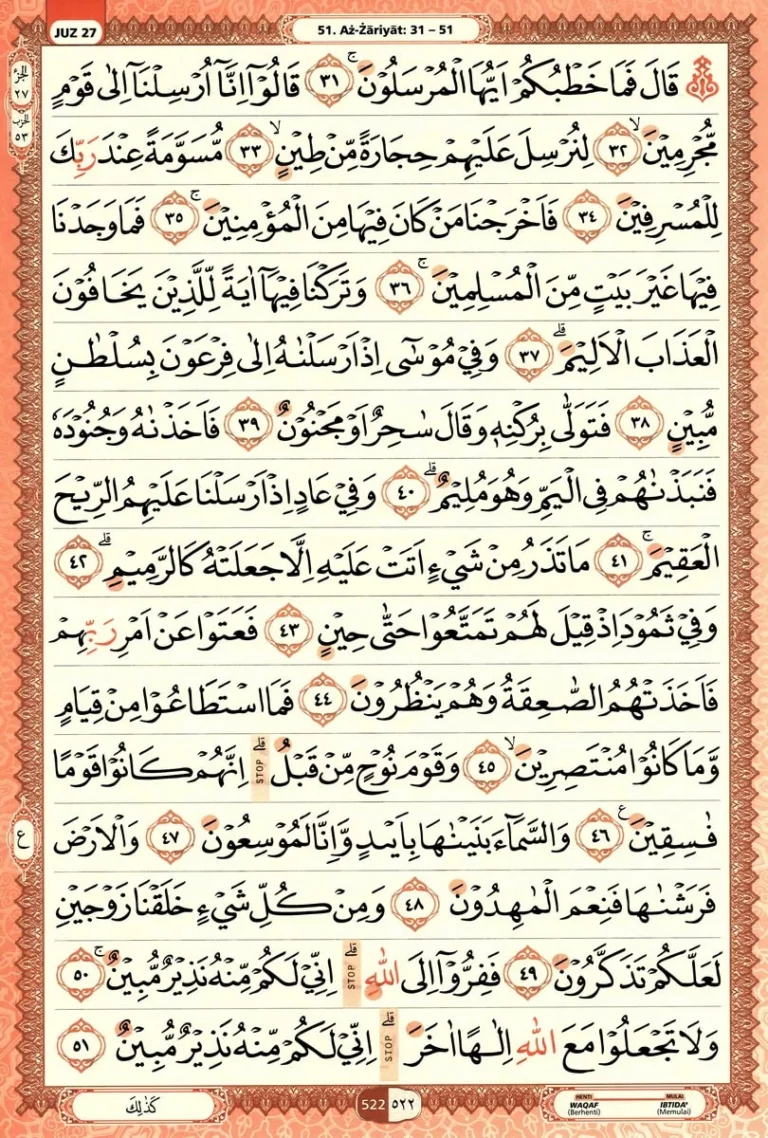 JUZ 27
51. Aż-Żāriyāt: 31 – 51
الجزء
٢٧
الحزب
٥٣
قَالَ فَمَا خَطْبُكُمْ اَيُّهَا الْمُرْسَلُوْنَۚ ٣١ قَالُوْٓا اِنَّآ اُرْسِلْنَآ اِلٰى قَوْمٍ
مُّجْرِمِيْنَۙ ٣٢ لِنُرْسِلَ عَلَيْهِمْ حِجَارَةً مِّنْ طِيْنٍۙ ٣٣ مُّسَوَّمَةً عِنْدَ رَبِّكَ
لِلْمُسْرِفِيْنَ ٣٤ فَاَخْرَجْنَا مَنْ كَانَ فِيْهَا مِنَ الْمُؤْمِنِيْنَۚ ٣٥ فَمَا وَجَدْنَا
فِيْهَا غَيْرَ بَيْتٍ مِّنَ الْمُسْلِمِيْنَۚ ٣٦ وَتَرَكْنَا فِيْهَآ اٰيَةً لِّلَّذِيْنَ يَخَافُوْنَ
الْعَذَابَ الْاَلِيْمَۗ ٣٧ وَفِيْ مُوْسٰىٓ اِذْ اَرْسَلْنٰهُ اِلٰى فِرْعَوْنَ بِسُلْطٰنٍ
مُّبِيْنٍ ٣٨ فَتَوَلّٰى بِرُكْنِهٖ وَقَالَ سٰحِرٌ اَوْ مَجْنُوْنٌ ٣٩ فَاَخَذْنٰهُ وَجُنُوْدَهٗ
فَنَبَذْنٰهُمْ فِى الْيَمِّ وَهُوَ مُلِيْمٌۗ ٤٠ وَفِيْ عَادٍ اِذْ اَرْسَلْنَا عَلَيْهِمُ الرِّيْحَ
الْعَقِيْمَۚ ٤١ مَا تَذَرُ مِنْ شَيْءٍ اَتَتْ عَلَيْهِ اِلَّا جَعَلَتْهُ كَالرَّمِيْمِۗ ٤٢
وَفِيْ ثَمُوْدَ اِذْ قِيْلَ لَهُمْ تَمَتَّعُوْا حَتّٰى حِيْنٍ ٤٣ فَعَتَوْا عَنْ اَمْرِ رَبِّهِمْ
فَاَخَذَتْهُمُ الصّٰعِقَةُ وَهُمْ يَنْظُرُوْنَ ٤٤ فَمَا اسْتَطَاعُوْا مِنْ قِيَامٍ
وَّمَا كَانُوْا مُنْتَصِرِيْنَۙ ٤٥ وَقَوْمَ نُوْحٍ مِّنْ قَبْلُۗ STOP اِنَّهُمْ كَانُوْا قَوْمًا
فٰسِقِيْنَ ࣖ ٤٦ وَالسَّمَاۤءَ بَنَيْنٰهَا بِاَيْىدٍ وَّاِنَّا لَمُوْسِعُوْنَ ٤٧ وَالْاَرْضَ
ع
فَرَشْنٰهَا فَنِعْمَ الْمٰهِدُوْنَ ٤٨ وَمِنْ كُلِّ شَيْءٍ خَلَقْنَا زَوْجَيْنِ
لَعَلَّكُمْ تَذَكَّرُوْنَ ٤٩ فَفِرُّوْٓا اِلَى اللّٰهِ ۗ STOP اِنِّيْ لَكُمْ مِّنْهُ نَذِيْرٌ مُّبِيْنٌۚ ٥٠
وَلَا تَجْعَلُوْا مَعَ اللّٰهِ اِلٰهًا اٰخَرَۗ STOP اِنِّيْ لَكُمْ مِّنْهُ نَذِيْرٌ مُّبِيْنٌ ٥١
كَذٰلِكَ
522 ٥٢٢
HENTI MULAI
WAQAF IBTIDA'
(Berhenti) (Memulai)